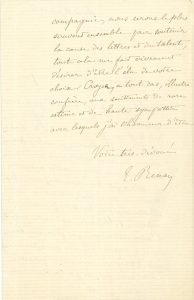 compagnie, nous serons le plus
souvent ensemble pour soutenir
la cause des lettres et du talent,
tout cela me fait vivement
désirer d'être l'élu de votre
choix. Croyez, en tout cas, illustre
confrère, aux sentiments de rare
estime et de haute sympathie
avec lesquels j'ai l'honneur d'être
Votre très dévoué
E. Renan